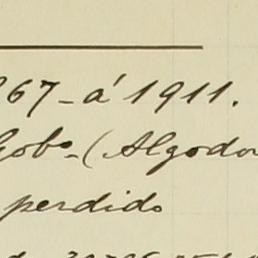 867_á 1911.
Gobº_(Algodo
perdido